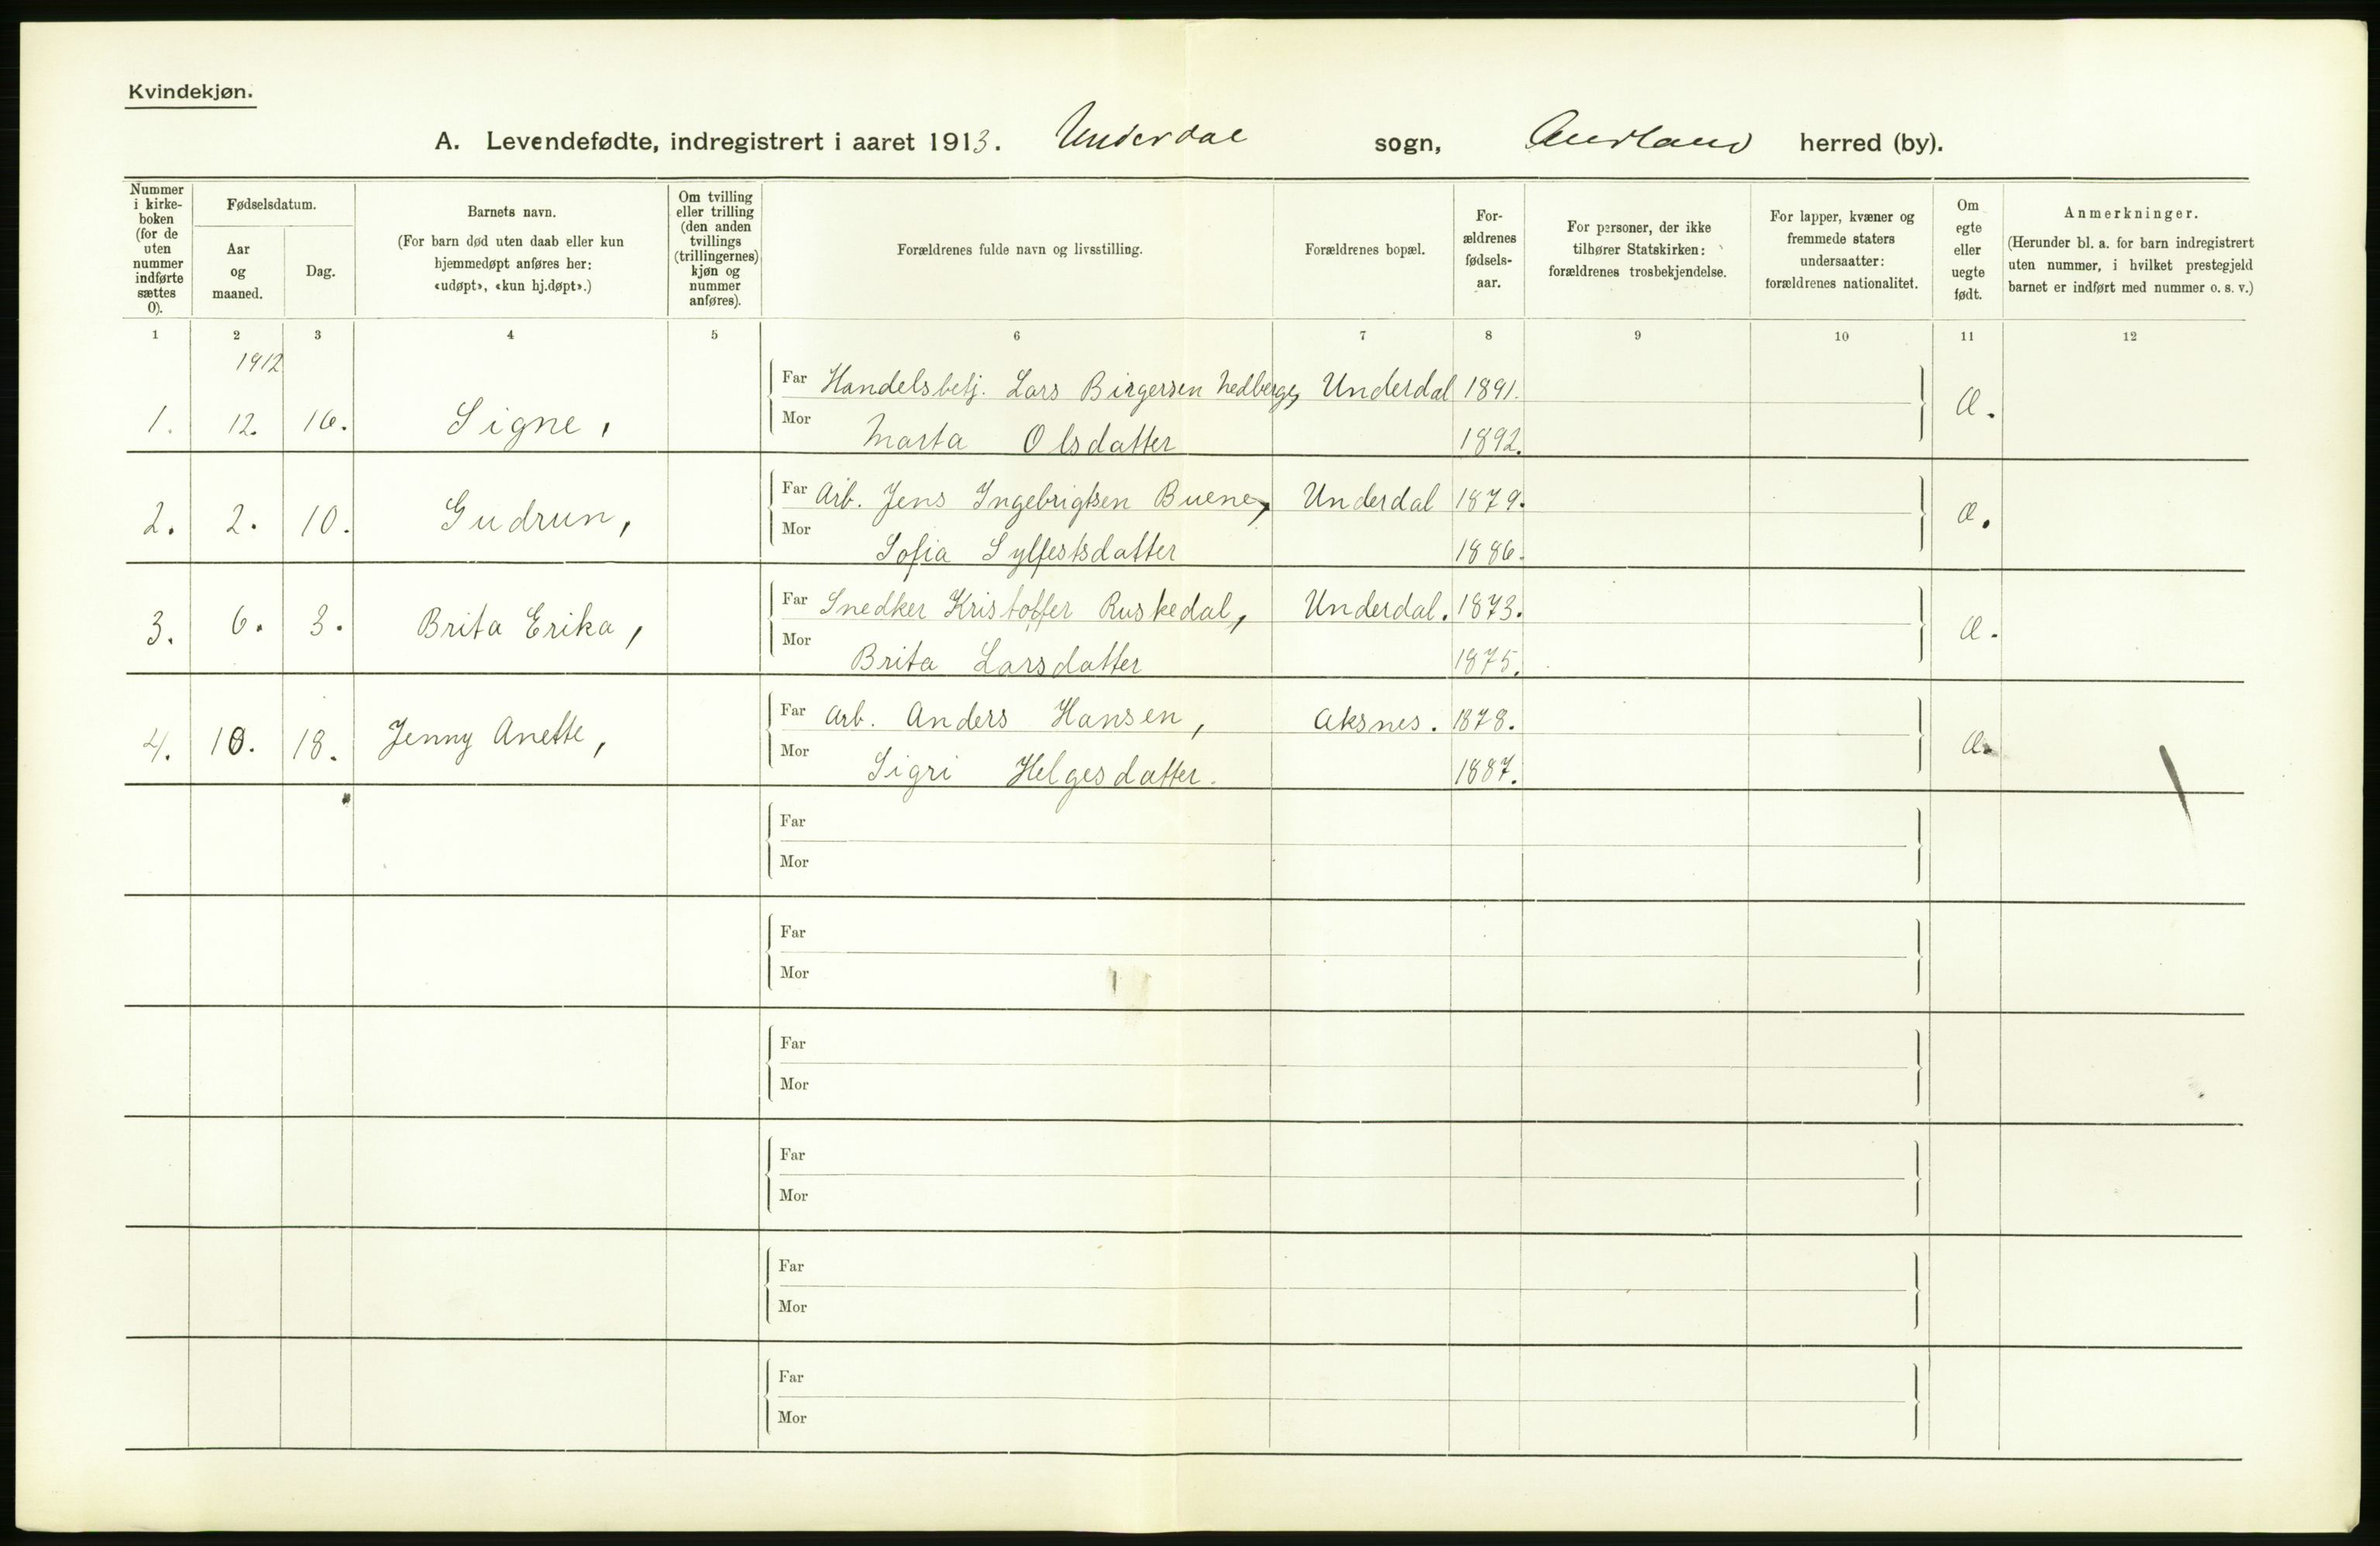 Kvindekjøn.
A. Levendefødte, indregistrert i aaret 1913. Underdal sogn, Aurland herred (by).
Nummer i kirke- boken (for de uten nummer indførte sættes 0).
Fødselsdatum.
Aar og maaned.
Dag.
Barnets navn.
(For barn død uten daab eller kun hjemmedøpt anføres her: «udøpt», «kun hj.døpt».)
Om tvilling eller trilling (den anden tvillings (trillingernes) kjøn og nummer anføres).
Forældrenes fulde navn og livsstilling.
Forældrenes bopæl.
For- ældrenes fødsels- aar.
For personer, der ikke tilhører Statskirken: forældrenes trosbekjendelse.
For lapper, kvæner og fremmede staters undersaatter: forældrenes nationalitet.
Om egte eller uegte født.
Anmerkninger.
(Herunder bl. a. for barn indregistrert uten nummer, i hvilket prestegjeld barnet er indført med nummer o. s. v.)
1 2 3 4 5 6 7 8 9 10 11 12
1912
Far Handelsbetj. Lars Birgersen Nedberge, Underdal 1891.
1. 12. 16. Signe, Æ.
Mor Marta Olsdatter 1892.
Far Arb. Jens Ingebrigtsen Buene, Underdal 1879.
2. 2. 10. Gudrun, Æ.
Mor Sofia Sylfestsdatter 1886.
Far Snedker Kristoffer Ruskedal, Underdal. 1873.
3. 6. 3. Brita Erika, Æ.
Mor Brita Larsdatter 1875.
Far Arb. Anders Hansen, Aksnes. 1878.
4. 10. 18. Jenny Anette, Æ.
Mor Sigri Helgesdatter. 1887.
Far
Mor
Far
Mor
Far
Mor
Far
Mor
Far
Mor
Far
Mor